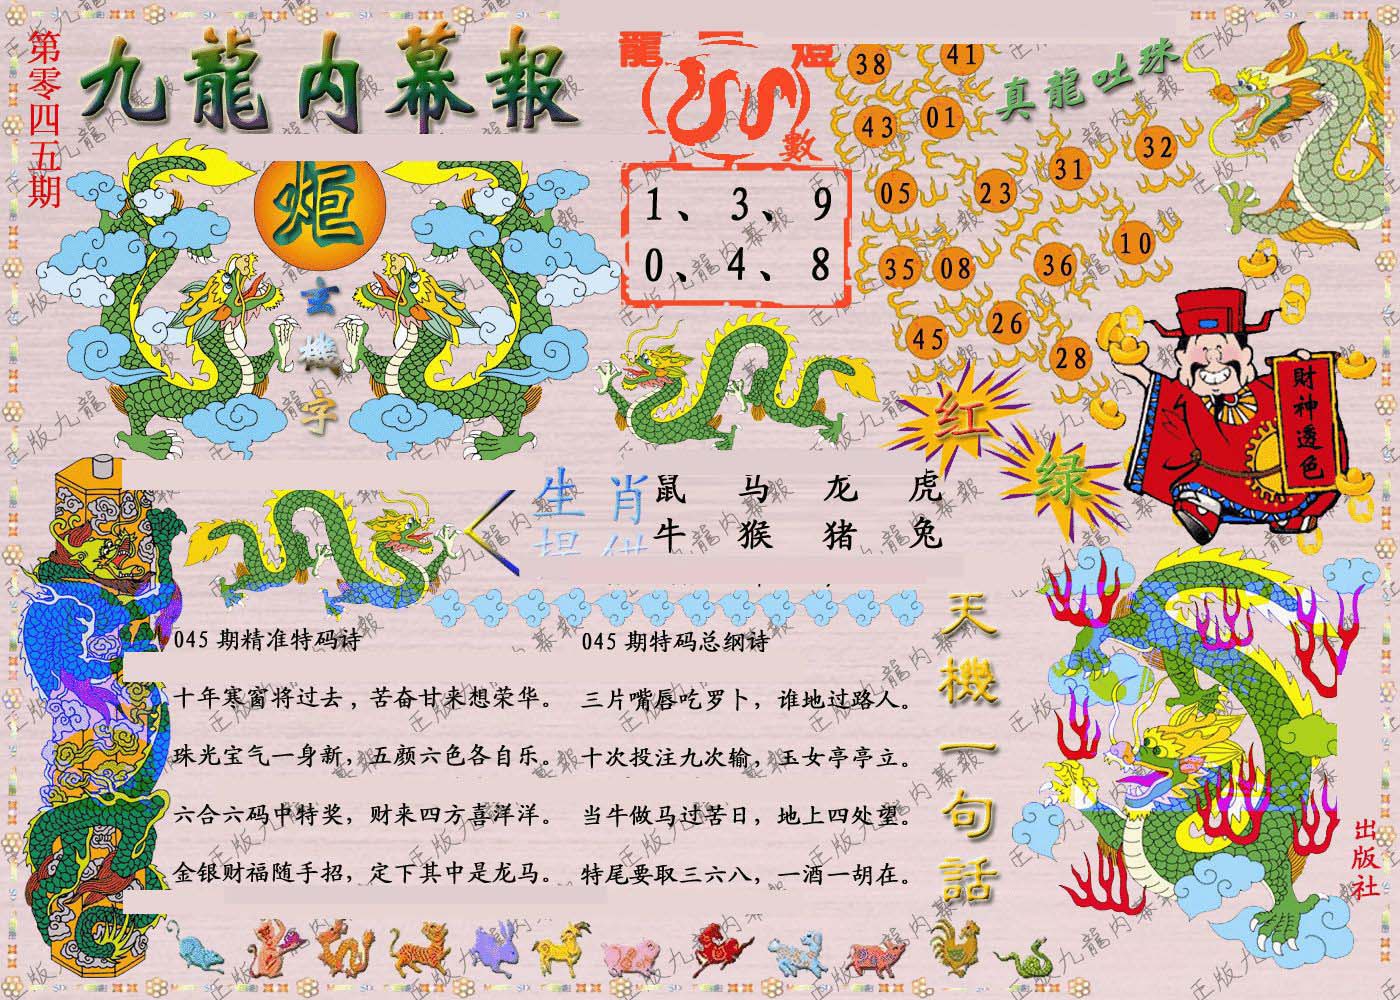 第零四五期
九龍内幕報
炬
玄機字
龍 燈
數
1、3、9
0、4、8
真龍吐珠
38
41
43
01
32
31
05
23
10
35
08
36
45
26
28
財神透色
红
绿
生肖
鼠 马 龙 虎
牛 猴 猪 兔
045期精准特码诗
十年寒窗将过去，苦奋甘来想荣华。
珠光宝气一身新，五颜六色各自乐。
六合六码中特奖，财来四方喜洋洋。
金银财福随手招，定下其中是龙马。
045期特码总纲诗
三片嘴唇吃罗卜，谁地过路人。
十次投注九次输，玉女亭亭立。
当牛做马过苦日，地上四处望。
特尾要取三六八，一酒一胡在。
天機一句話
出版社
正版九龍内幕報